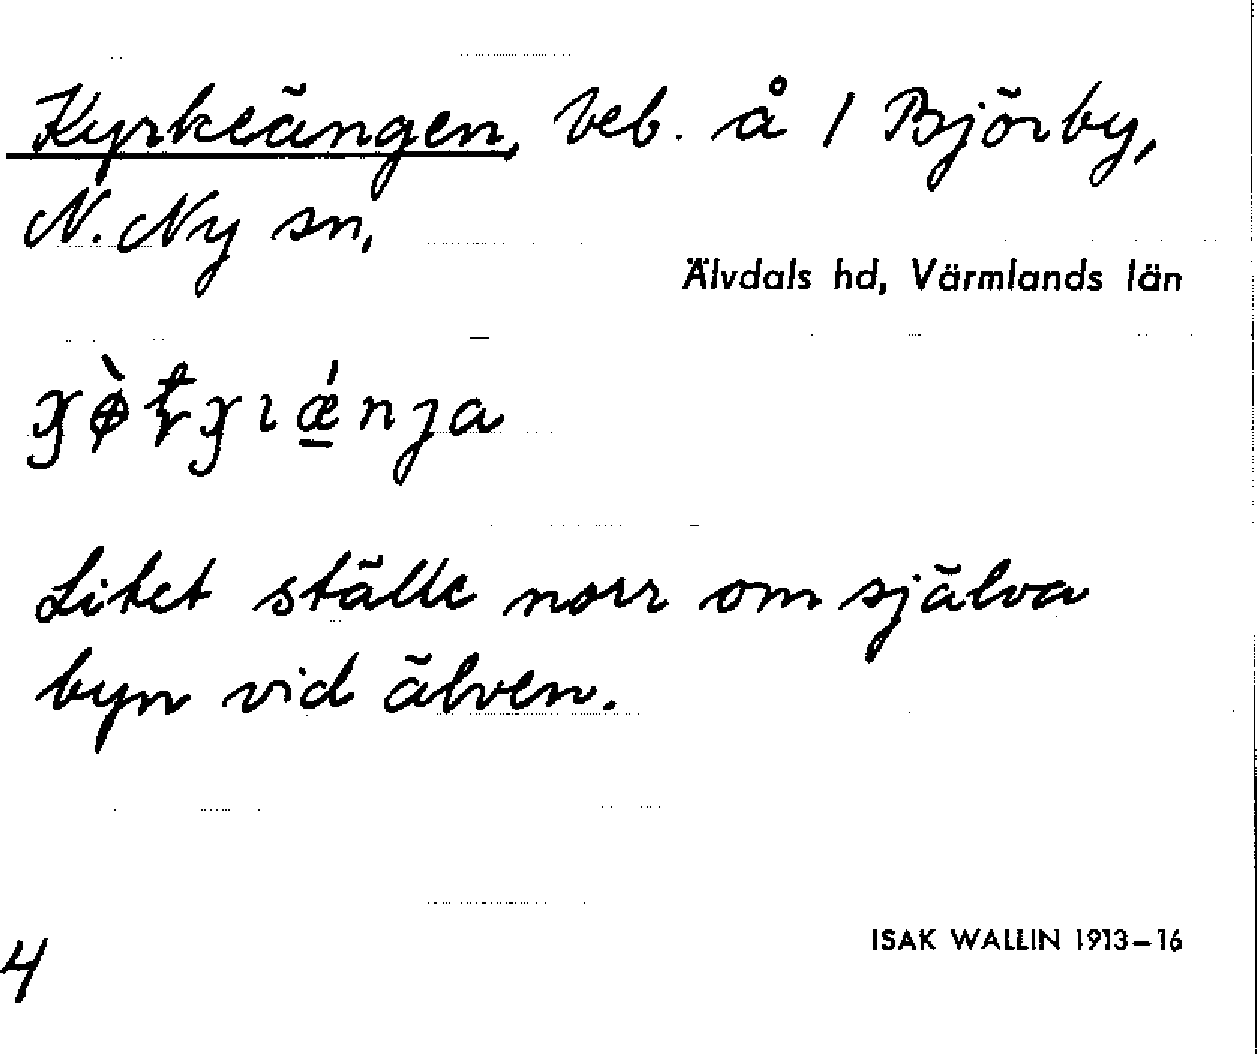 Kyrkeängen, beb. å 1 Björby,
N. Ny sn,
Älvdals hd, Värmlands län
Litet ställe norr om själva
byn vid älven.
4
ISAK WALLIN 1913–16